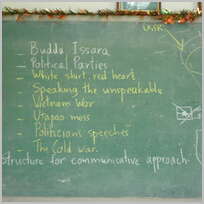 LKSR
_ Budda Issara
_ Political Parties
_ White shirt, red heart
_ Speaking the unspeakable
_ Vietnam War
_ Utapao mess
_ Politicians speeches
_ The Cold war.
Structure for communicative approach.